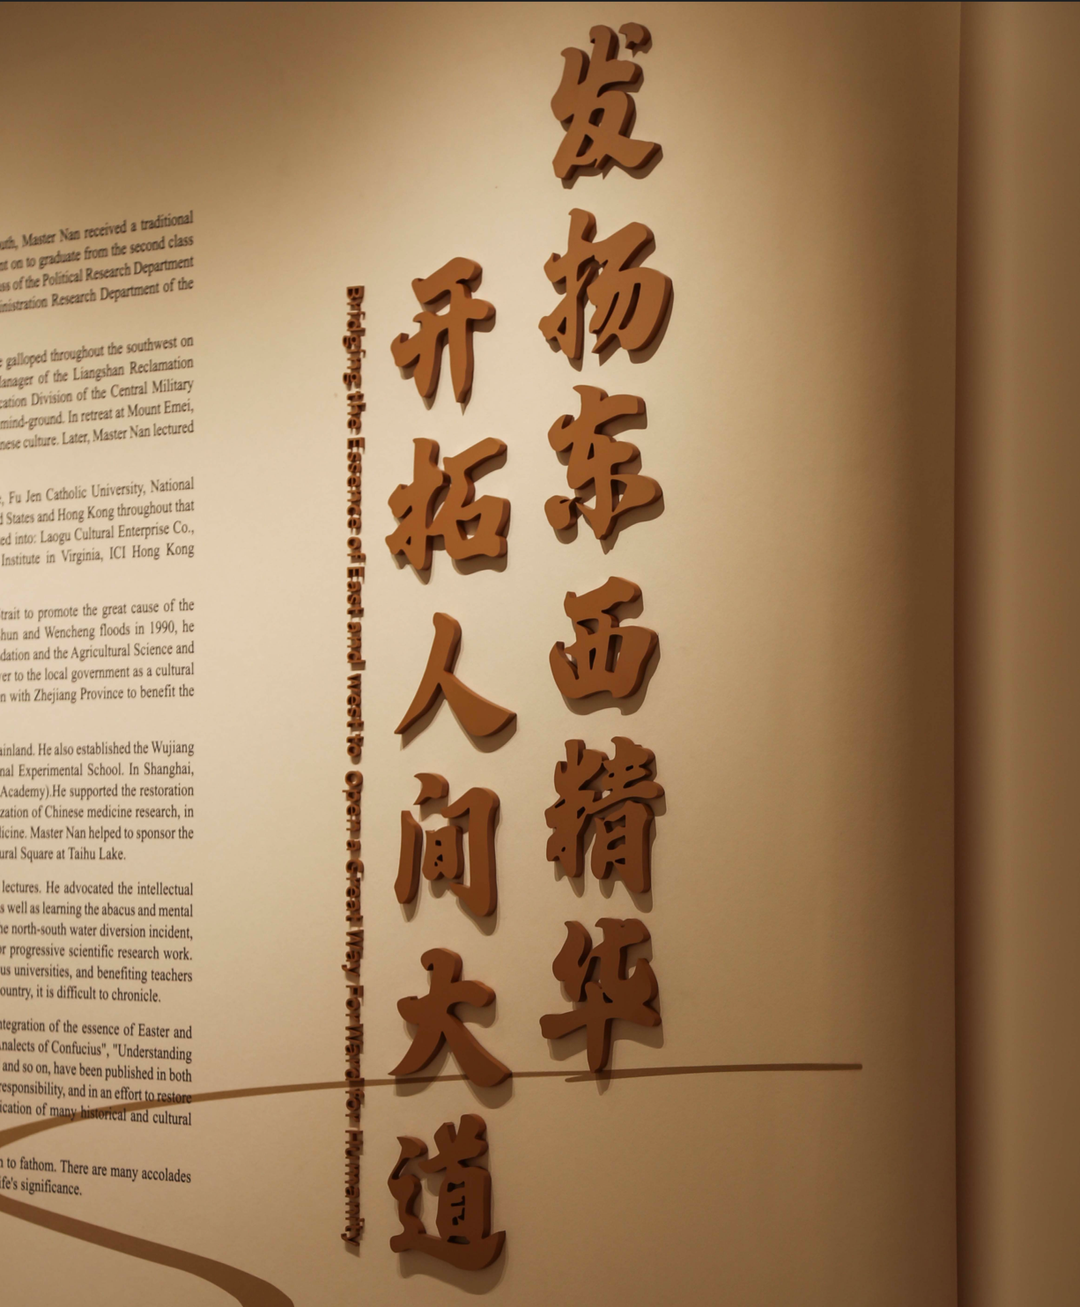 发扬东西精华
开拓人间大道
Bridging the Essence of East and west to Open a Great Way ForWard for Humanity
uth, Master Nan received a traditional
nt on to graduate from the second class
ss of the Political Research Department
inistration Research Department of the
e galloped throughout the southwest on
anager of the Liangshan Reclamation
cation Division of the Central Military
mind-ground. In retreat at Mount Emei,
nese culture. Later, Master Nan lectured
, Fu Jen Catholic University, National
d States and Hong Kong throughout that
ed into: Laogu Cultural Enterprise Co.,
Institute in Virginia, ICI Hong Kong
trait to promote the great cause of the
hun and Wencheng floods in 1990, he
dation and the Agricultural Science and
er to the local government as a cultural
n with Zhejiang Province to benefit the
ainland. He also established the Wujiang
nal Experimental School. In Shanghai,
Academy).He supported the restoration
zation of Chinese medicine research, in
licine. Master Nan helped to sponsor the
ural Square at Taihu Lake.
lectures. He advocated the intellectual
s well as learning the abacus and mental
he north-south water diversion incident,
or progressive scientific research work.
us universities, and benefiting teachers
ountry, it is difficult to chronicle.
ntegration of the essence of Easter and
Analects of Confucius", "Understanding
and so on, have been published in both
responsibility, and in an effort to restore
ication of many historical and cultural
n to fathom. There are many accolades
ife's significance.